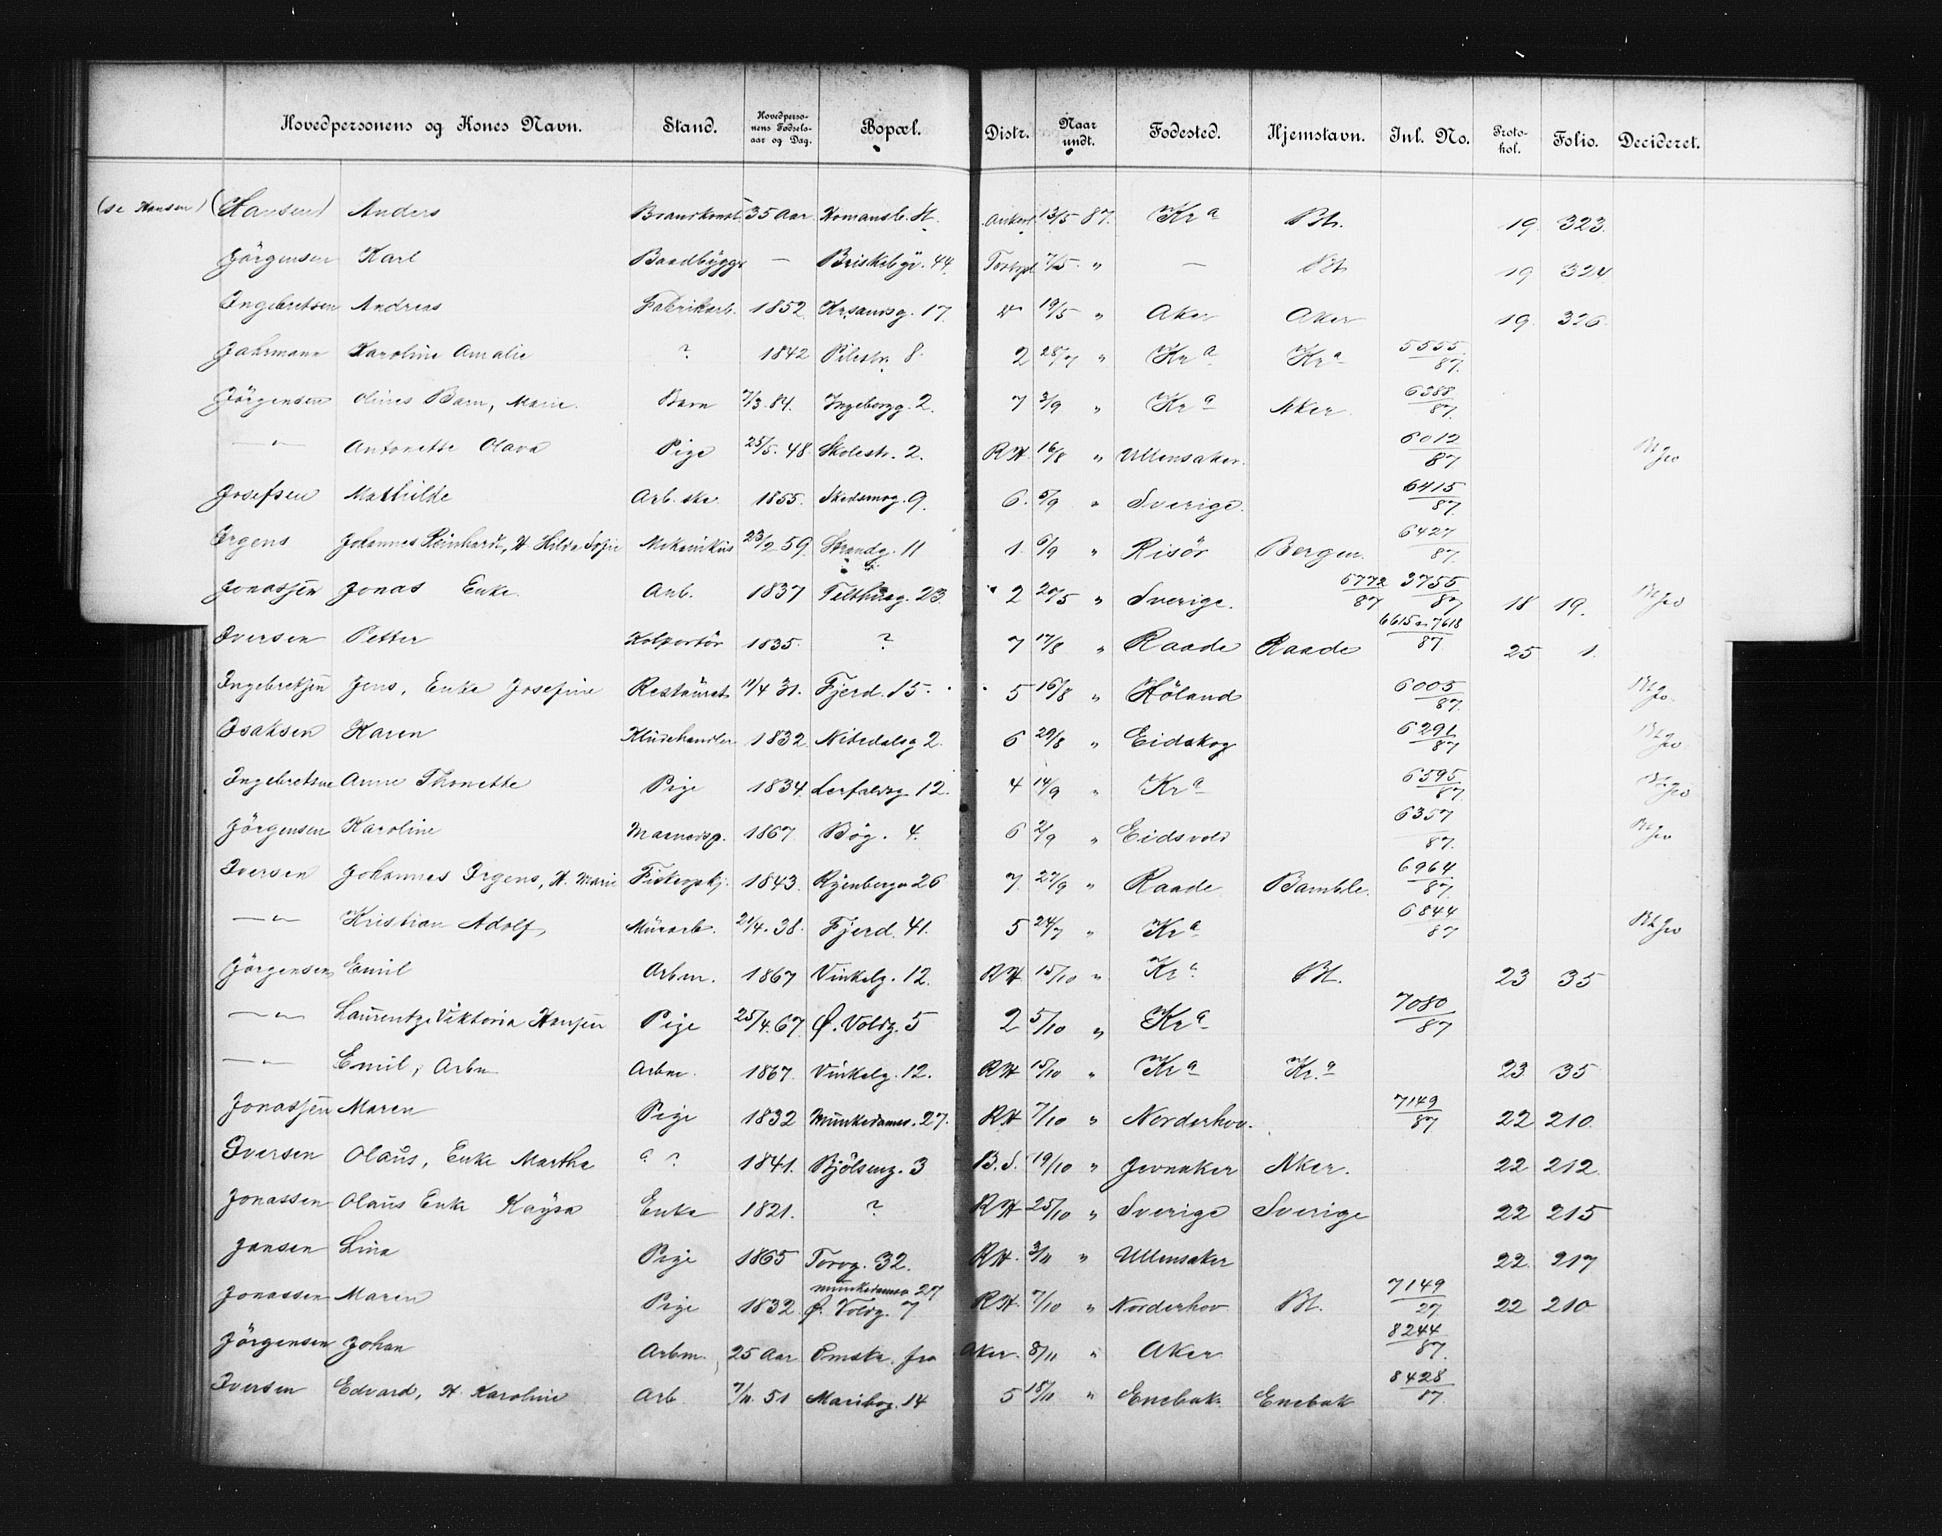 Hovedpersonens og Kones Navn. Stand. Hovedpersonens Fødselsaar og Dag. Bopæl. Distr. Naar undt. Fødested. Hjemstavn. Inl. No. Protokol. Folio. Decideret.
(se Hansen) (Hansen) Anders 35 Aar Homansb. St. 13/5 87. Kr a Bt. 19 323.
Jörgensen Karl Baadbygger — Briskebyv. 44. 7/5 " — Bt 19 324
Ingebretsen Andreas Fabrikarb. 1852 Kr.sandsg. 17. 19/5 " Aker Aker 19. 326.
Jahrmann Karoline Amalie ? 1842 Pilestr. 8. 2 28/7 " Kr a Kr a 5555/87.
Jörgensen Olines Barn, Marie. Barn 7/3. 84. Ingeborgg. 2. 7 3/9 " Kr a Aker. 6388/87.
—"— Antonette Olava Pige 25/5. 48. Skolestr. 2. RH 16/8 " Ullensaker. 6012/87
Josefsen Mathilde Arb.ske 1855. Skedsmog. 9. 6. 5/9 " Sverige. 6415/87.
Irgens Johannes Reinhardt, H Hilda Sofie Mekanikus 23/2 59. Strandg. 11 1. 6/9 " Risör Bergen. 6427/87.
Jonassen Jonas Enke. Arb. 1837 Telthusg. 23. 2 20/5 " Sverige. 5772/87 3755/87 18 19.
Iversen Petter Kolportör 1835. ? 7 17/8 " Raade Raade 6615 7618/87. 25 1.
Ingebretsen Jens, Enke Josefine Restaurat. 11/4 31. Fjerd. 15. 5 16/8 " Höland 6005/87.
Isaksen Karen Kludehandler 1832. Nitedalsg 2. 6 29/8 " Eidskog 6291/87
Ingebretsen Anne Thonette Pige 1834. Lerfaldsg 12. 4 14/9 " Kr a 6595/87.
Jörgensen Karoline 1867. Bög. 4. 6 2/9 " Eidsvold 6357/87.
Iversen Johannes Irgens, H. Marie 1843. Ryenbergv 26 7. 27/9 " Raade Bamble. 6964/87.
—"— Kristian Adolf, Murarb. 21/4. 38. Fjerd. 41. 5 24/7 " Kr a 6844/87
Jörgensen Emil Arbm. 1867 Vinkelg. 12. RH 15/10 " Kr a Bt. 23 35
—"— Laurentze Viktoria Hansen Pige 25/4. 67. Ø. Voldg. 5 2 5/10 " Kr a 7080/87
—"— Emil, Arbm Arbm. 1867. Vinkelg. 12. RH 15/10 " Kr a Kr. a 23 35
Jonassen Maren Pige 1832 Munkedams. 27. RH 7/10 " Norderhov. 7149/87 22 210.
Iversen Olaus, Enke Martha 1841. Bjölseng. 3 B.S. 19/10 " Jevnaker Aker. 22 212
Jonassen Olaus Enke Kaysa Enke 1821. ? RH 25/10 " Sverige Sverige 22 215
Jansen Lina Pige 1865 Torvg. 32. RH. 3/11 " Ullensaker 22. 217
Jonassen Maren Pige 1832. Munkedamsv 27 Ø. Voldg. 7 RH. 7/10 " Norderhov Bt. 7149/27 22 210
Jörgensen Johan Arbm. 25 Aar Omstr. fra Aker. 8/11 " Aker 8244/87.
Iversen Edvard, H Karoline Arb 7/11. 51 Maribog. 14 5 15/11 " Enebak Enebak 8428/87.